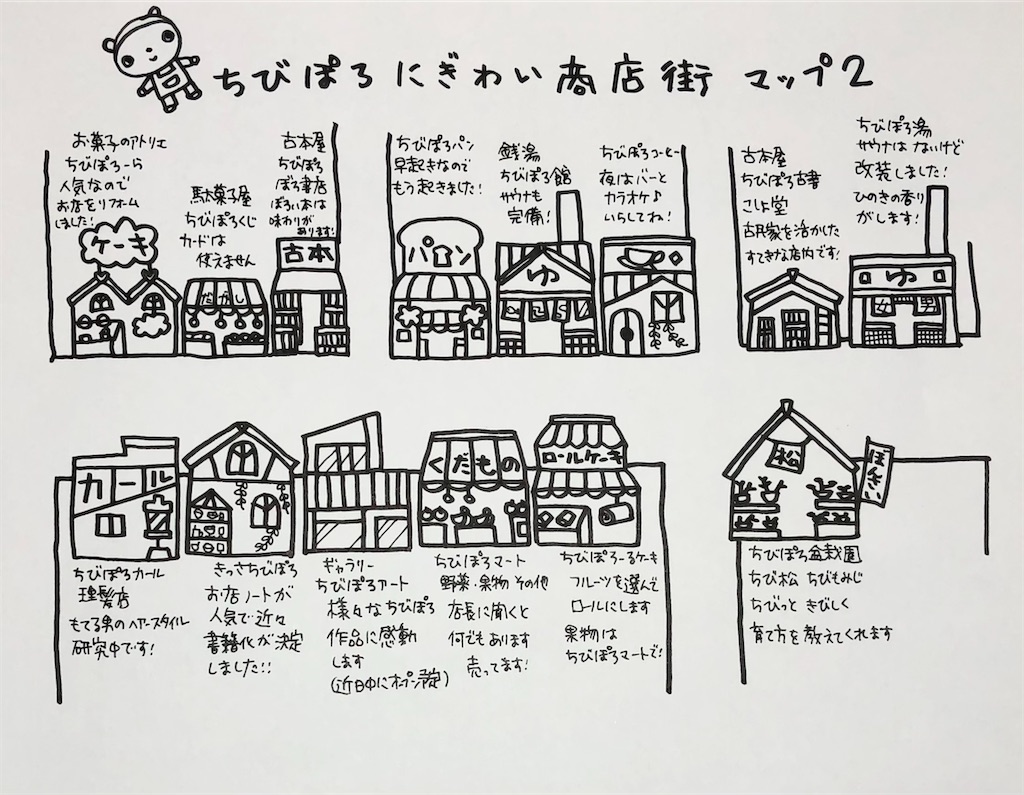 ちびぽろにぎわい商店街 マップ2
お菓子のアトリエ
ちびぽろーら
人気なので
お店をリフォーム
しました!
ケーキ
駄菓子屋
ちびぽろくじ
カードは
使えません
だがし
古本屋
ちびぽろ
ぼろ書店
ぼろい本は
味わりが
あります!
古本
ちびぽろパン
早起きなので
もう起きました!
パン
銭湯
ちびぽろ館
サウナも
完備!
ゆ
ちびぽろコーヒー
夜はバーと
カラオケ♪
いらしてね!
古本屋
ちびぽろ古書
こしょ堂
古民家を活かした
すてきな店内です!
ちびぽろ湯
サウナは ないけど
改装しました!
ひのきの香り
がします!
ゆ
女 男
カール
ちびぽろカール
理髪店
もてる男のヘアースタイル
研究中です!
きっさちびぽろ
お店ノートが
人気で近々
書籍化が決定
しました!!
ギャラリー
ちびぽろアート
様々なちびぽろ
作品に感動
します
(近日中にオープン予定)
くだもの
ちびぽろマート
野菜・果物 その他
店長に聞くと
何でもあります
売ってます!
ロールケーキ
ちびぽろーるケーキ
フルーツを選んで
ロールにします
果物は
ちびぽろマートで!
松
ぼんさい
ちびぽろ盆栽園
ちび松 ちびもみじ
ちびっと きびしく
育て方を教えてくれます